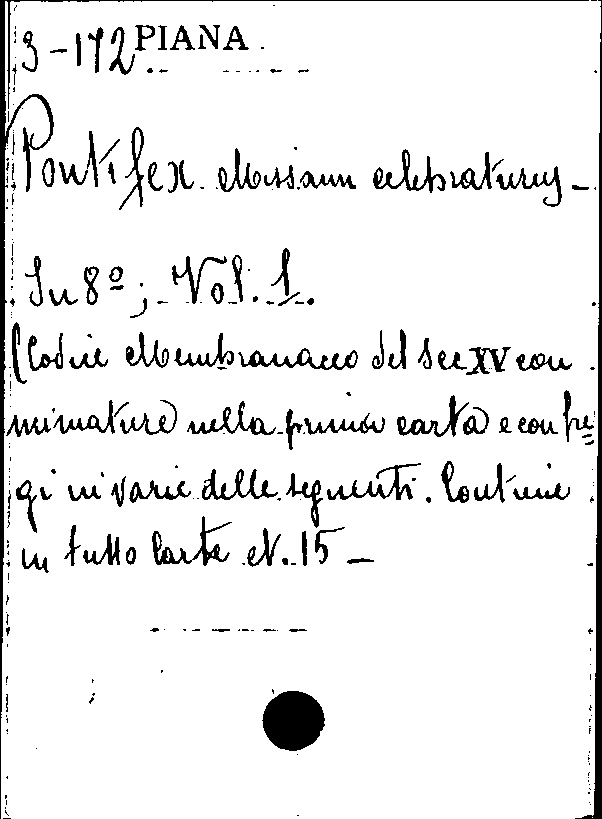 3-172 PIANA
Pontifex Missam celebraturus -
In 8º; Vol. 1.
Codice Membranaceo del sec XV con
miniature nella prima carta e con fre=
gi in varie delle seguenti. Contiene
in tutto Carte N. 15 -